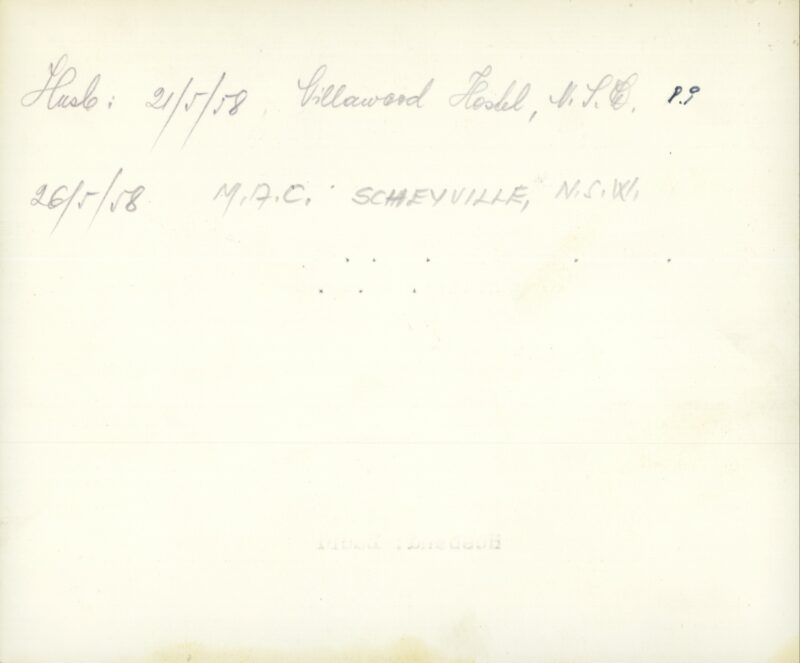 Husb: 21/5/58, Villawood Hostel, N.S.W. P.9
26/5/58 M.A.C. SCHEYVILLE, N.S.W.
Husband: